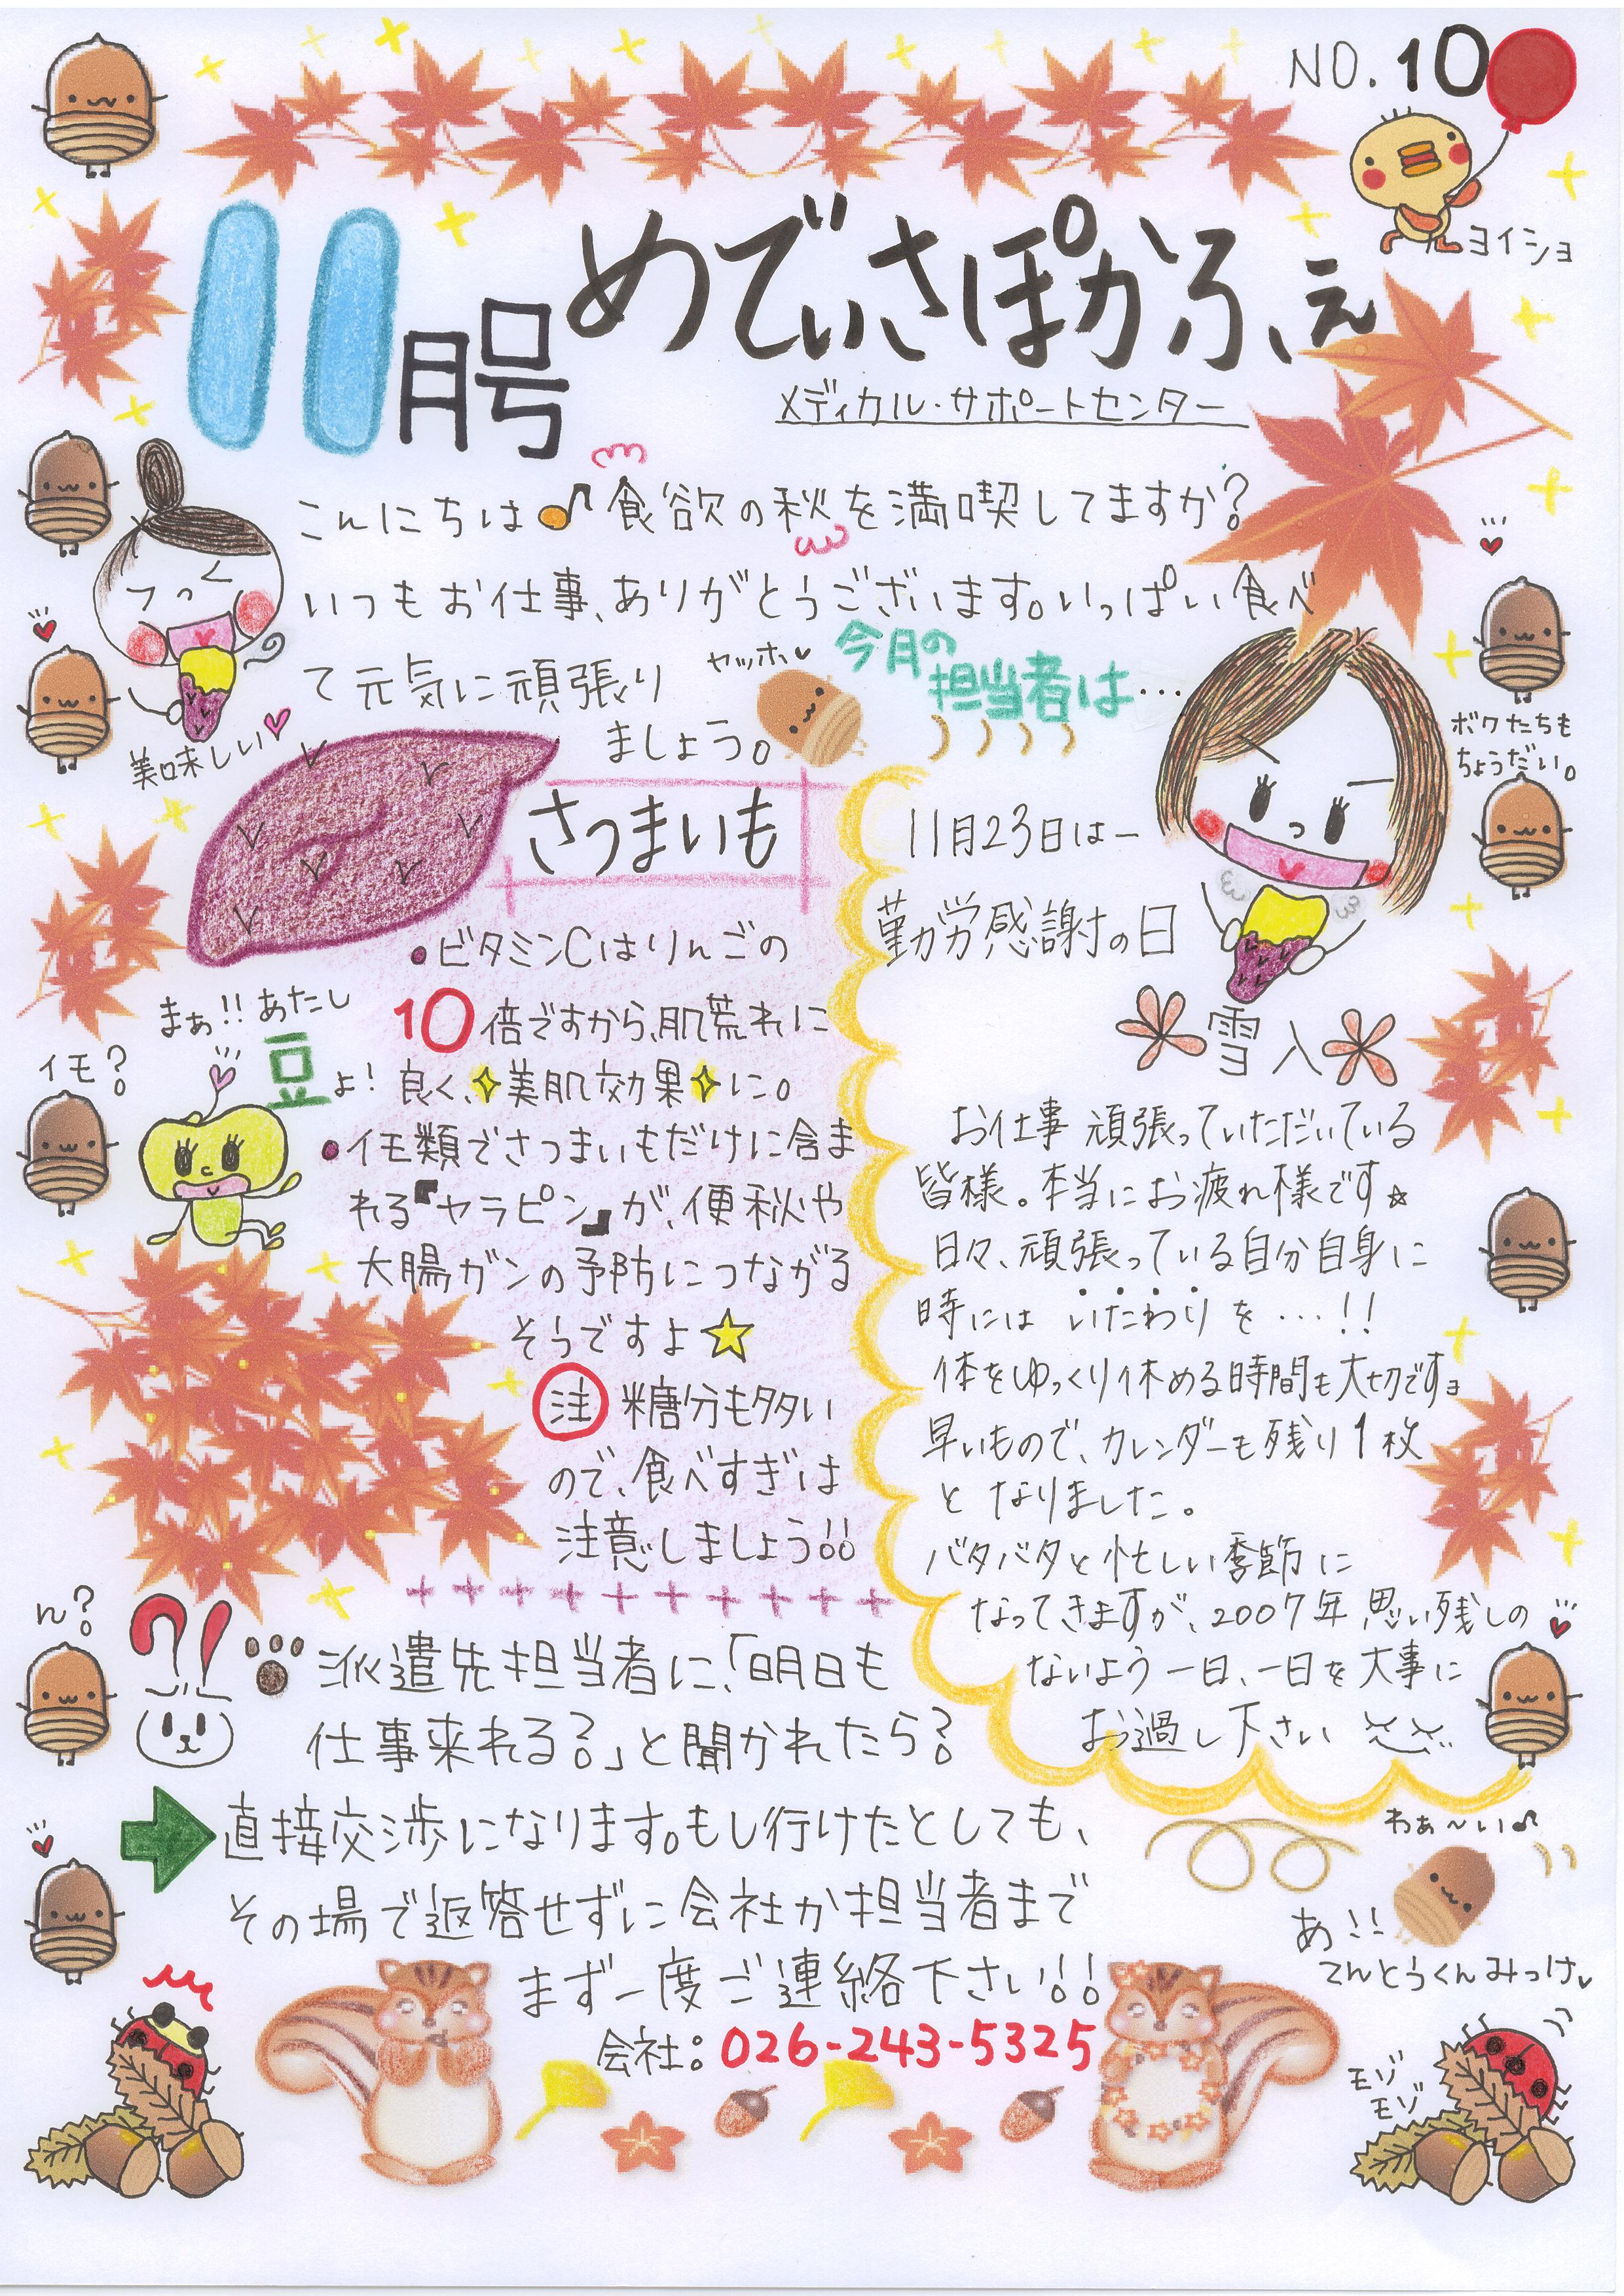 NO.10
ヨイショ
11月号 めでぃさぽかふぇ
メディカル・サポートセンター
こんにちは♪食欲の秋を満喫してますか?
いつもお仕事、ありがとうございます。いっぱい食べ
て元気に頑張り
ましょう。
美味しい♡
ヤッホ♥
今月の
担当者は…
ボクたちも
ちょうだい。
さつまいも
●ビタミンCはりんごの
10倍ですから、肌荒れに
良く、✧美肌効果✧に。
●イモ類でさつまいもだけに含ま
れる『ヤラピン』が、便秘や
大腸ガンの予防につながる
そうですよ☆
注 糖分も多い
ので、食べすぎは
注意しましょう!!
まぁ!!あたし
豆よ!
イモ?
11月23日はー
勤労感謝の日
雪入
お仕事 頑張っていただいている
皆様。本当にお疲れ様です☆
日々、頑張っている自分自身に
時には いたわり を…!!
体をゆっくり休める時間も大切です。
早いもので、カレンダーも残り1枚
と なりました。
バタバタと忙しい季節に
なってきますが、2007年 思い残しの
ないよう 一日、一日を大事に
お過し下さい
ん?
?!
派遣先担当者に、「明日も
仕事来れる?」と聞かれたら?
直接交渉になります。もし行けたとしても、
その場で返答せずに会社か担当者まで
まず一度ご連絡下さい!!
会社:026-243-5325
わぁ~い♪
あ!!
てんとうくんみっけ♥
モゾ
モゾ